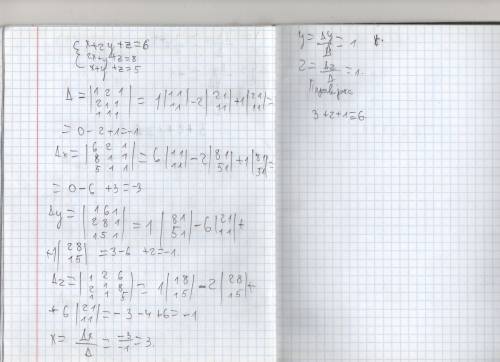 { x+2y+z=6
2x+y+z=8
x+y+z=5
Δ = |1 2 1; 2 1 1; 1 1 1| = 1|1 1; 1 1| -2|2 1; 1 1| +1|2 1; 1 1| =
= 0-2+1=-1
Δx= |6 2 1; 8 1 1; 5 1 1| = 6|1 1; 1 1| -2|8 1; 5 1| +1|8 1; 5 1| =
= 0-6+3=-3
Δy= |1 6 1; 2 8 1; 1 5 1| = 1|8 1; 5 1| -6|2 1; 1 1| +
+1|2 8; 1 5| =3-6+2=-1.
Δz= |1 2 6; 2 1 8; 1 1 5| = 1|1 8; 1 5| -2|2 8; 1 5| +
+6|2 1; 1 1| = -3-4+6=-1
x= Δx/Δ = -3/-1 =3.
y= Δy/Δ = 1
z= Δz/Δ =1.
Проверка
3+2+1=6